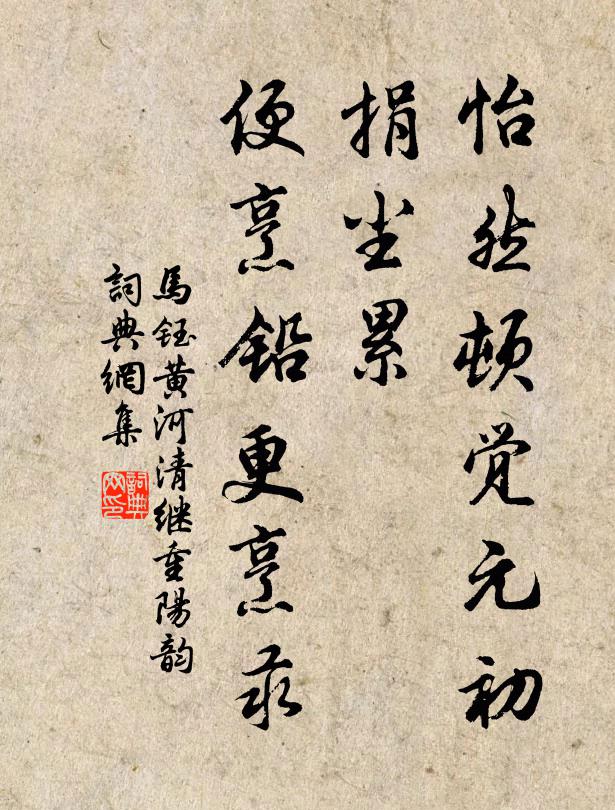 怡然顿觉元初
捐尘累
便烹铅更烹汞
馬鈺黄河清继重陽韵
詞典網集
詞典
网印